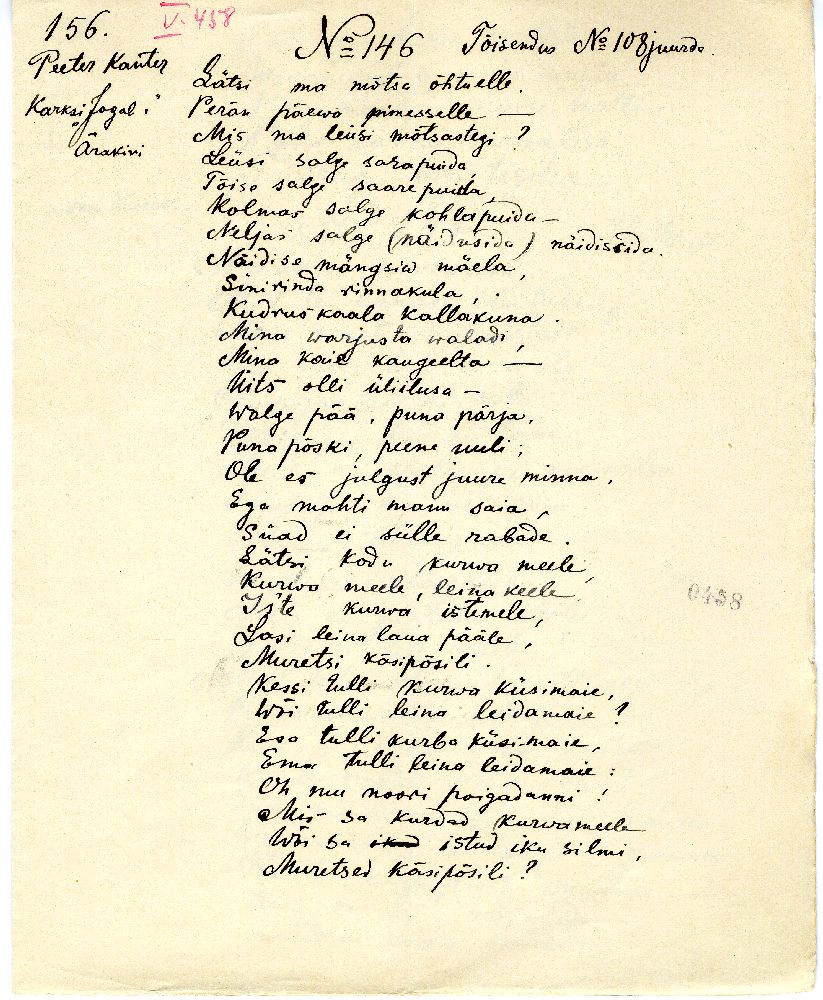 156.
V. 458
№ 146 Tõisendus № 108 juurde.
Peeter Kanter
Karksi Jogal.
"Ärakivi
Lätsi ma mõtsa õhtuelle.
Perän päewa pimesselle —
Mis ma leüsi mõtsastegi?
Leüsi salge sarapuida,
Tõise salge saarepuida,
Kolmas salge kohlapuida —
Neljas salge (näidusida) näidissida.
Näidise mängsiw mäela,
Sinirinda rinnakula,
Kudruskaala kallakuna.
Mina warjusta waladi,
Mina kaie kaugeelta —
Üits olli üliilusa —
Walge pää, puna pärja,
Puna põski, peene uuli;
Ole es julgust juure minna,
Ega mahti manu saia,
Süad ei sülle rabade.
Lätsi kodu kurwa meele,
Kurwa meele, leina keele
Iste kurwa istemele,
Lasi leina laua pääle,
Muretsi käsipõsili.
Kessi tulli kurwa küsimaie,
Wõi tulli leina leidamaie?
Esa tulli kurba küsimaie,
Ema tulli leina leidamaie:
Oh mu noori poigadanni!
Mis sa kurdad kurwameele
Wõi sa istud iku silmi,
Muretsed käsipõsili?
0458